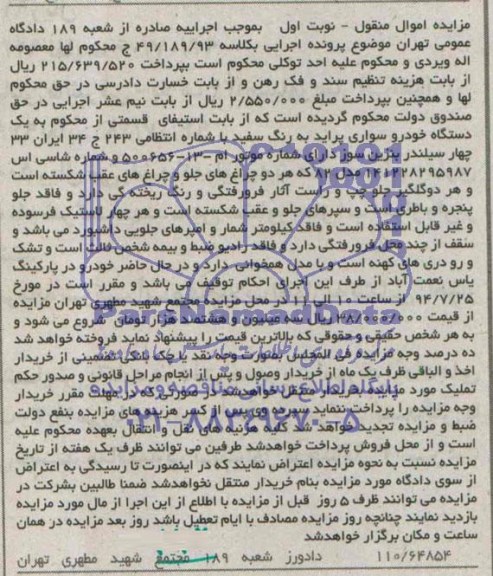 مزایده اموال منقول - نوبت اول بموجب اجراییه صادره از شعبه ۱۸۹ دادگاه
عمومی تهران موضوع پرونده اجرایی بکلاسه ۴۹/۱۸۹/۹۳ ج محکوم لها معصومه
اله ویردی و محکوم علیه احد توکلی محکوم است بپرداخت ۲۱۵/۶۳۹/۵۲۰ ریال
از بابت هزینه تنظیم سند و فک رهن و از بابت خسارت دادرسی در حق محکوم
لها و همچنین بپرداخت مبلغ ۲/۵۵۰/۰۰۰ ریال از بابت نیم عشر اجرایی در حق
صندوق دولت محکوم گردیده است که از بابت استیفای قسمتی از محکوم به یک
دستگاه خودرو سواری پراید به رنگ سفید با شماره انتظامی ۲۴۳ ج ۳۴ ایران ۳۳
چهار سیلندر بنزین سوز دارای شماره موتور ام -۱۳- ۵۰۰۶۵۶ و شماره شاسی اس
۱۴۱۲۲۸۲۹۵۹۸۷ مدل ۸۲ که هر دو چراغ های جلو و چراغ های عقب شکسته است
و هر دوگلگیر جلو چپ و راست آثار فرورفتگی و رنگ ریخته گی دارد و فاقد جلو
پنجره و باطری است و سپرهای جلو و عقب شکسته است و هر چهار لاستیک فرسوده
و غیر قابل استفاده است و فاقد کیلومتر شمار و آمپرهای جلویی داشبورد می باشد و
سقف از چند محل فرورفتگی دارد و فاقد رادیو ضبط و بیمه شخص ثالث است و تشک
و رو دری های کهنه است و با مدل همخوانی دارد و در حال حاضر خودرو در پارکینگ
یاس نعمت آباد از طرف این اجرای احکام توقیف می باشد و مقرر است در مورخ
۹۴/۷/۲۵ از ساعت ۱۰ الی ۱۱ در محل مزایده مجتمع شهید مطهری تهران مزایده
از قیمت ۳۸/۰۰۰/۰۰۰ ریال سه میلیون و هشتصد هزار تومان شروع می شود و
به هر شخص حقیقی و حقوقی که بالاترین قیمت را پیشنهاد نماید فروخته خواهد شد
ده درصد وجه مزایده فی المجلس بصورت وجه نقد یا چک بانکی تضمینی از خریدار
اخذ و الباقی ظرف یک ماه از خریدار وصول و پس از انجام مراحل قانونی و صدور حکم
تملیک مورد مزایده بخریدار منتقل خواهدشد در صورتی که در مهلت مقرر خریدار
وجه مزایده را پرداخت ننماید سپرده وی پس از کسر هزینه های مزایده بنفع دولت
ضبط و مزایده تجدید خواهد شد کلیه هزینه های نقل و انتقال بعهده محکوم علیه
است و از محل فروش پرداخت خواهدشد طرفین می توانند ظرف یک هفته از تاریخ
مزایده نسبت به نحوه مزایده اعتراض نمایند که در اینصورت تا رسیدگی به اعتراض
از سوی دادگاه مورد مزایده بنام خریدار منتقل نخواهدشد ضمنا طالبین بشرکت در
مزایده می توانند ظرف ۵ روز قبل از مزایده با اطلاع از این اجرا از مال مورد مزایده
بازدید نمایند چنانچه روز مزایده مصادف با ایام تعطیل باشد روز بعد مزایده در همان
ساعت و مکان برگزار خواهدشد
۱۱۰/۶۴۸۵۴ دادورز شعبه ۱۸۹ مجتمع شهید مطهری تهران